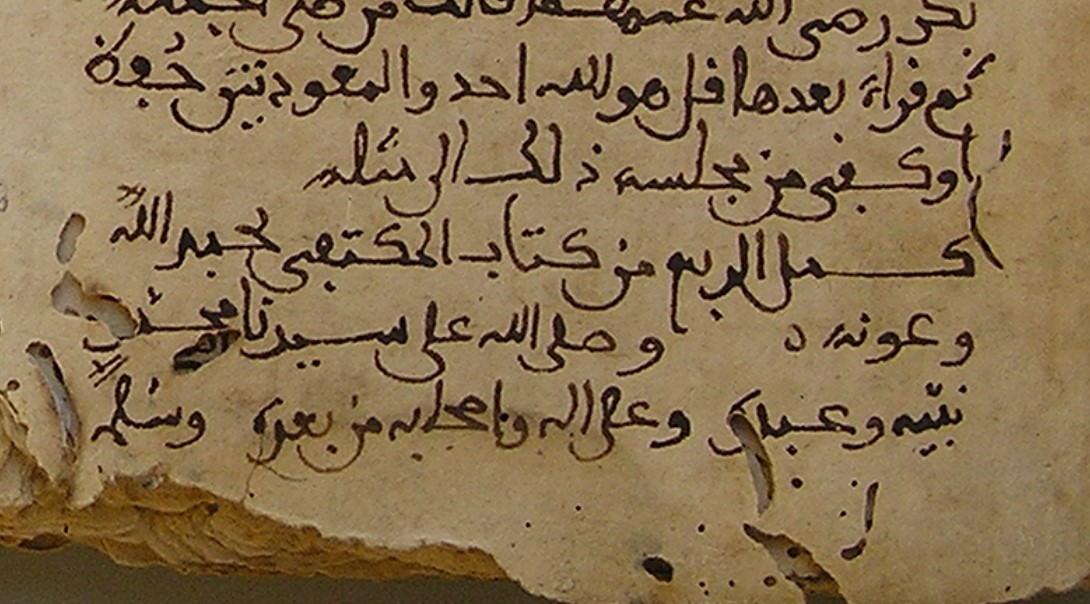 بكر رضي الله عنهما قالت من صلى الجمعة
ثم قرأ بعدها قل هو الله احد والمعوذتين حفظ
او كفي من مجلسه ذلك الى مثله
كمل الربع من كتاب المكتفي بحمد الله
وعونه ه وصلى الله على سيدنا محمد
نبيه وعبده وعلى اله واصحابه من بعده وسلم